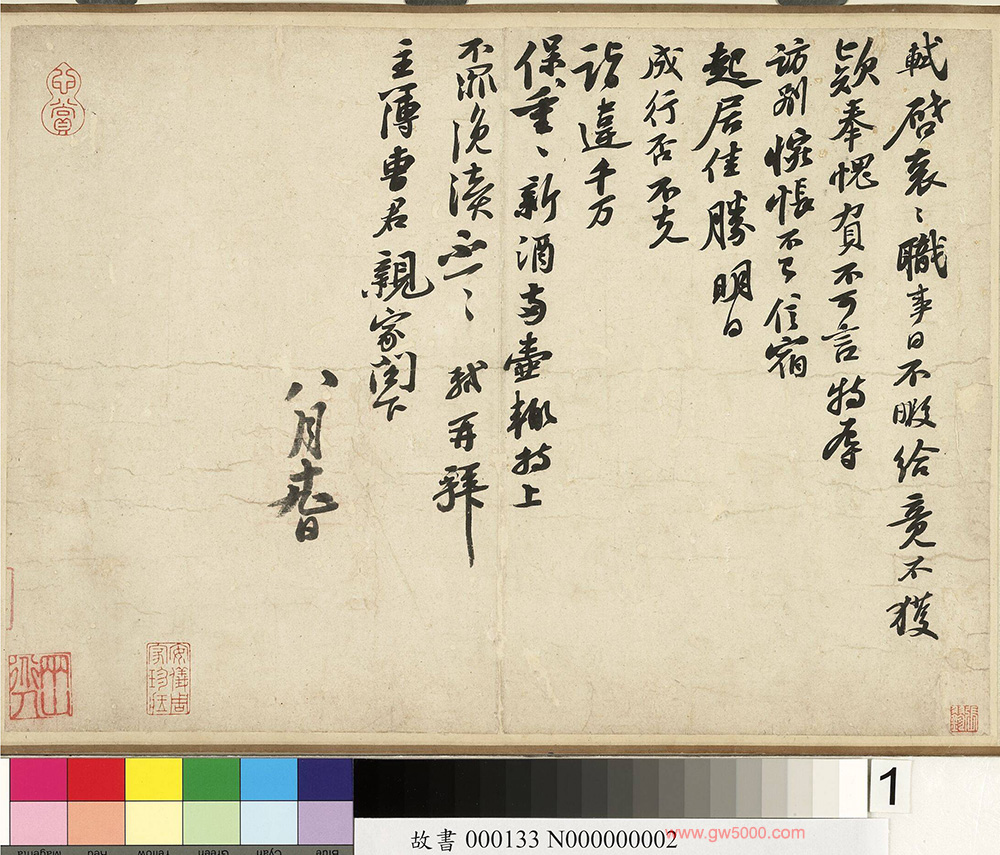 軾啓衮〻職事日不暇給竟不獲
款奉愧負不可言特辱
訪別惋悵不已信宿
起居佳勝明日
成行否不克
詣違千万
保重〻新酒兩壺輒持上
不罪浼瀆不一〻 軾再拜
主簿曹君親家閤下
八月 日
心賞
安儀周家珍藏
1
Blue Cyan Green Yellow Red Magenta
故書 000133 N000000002
www.gw5000.com